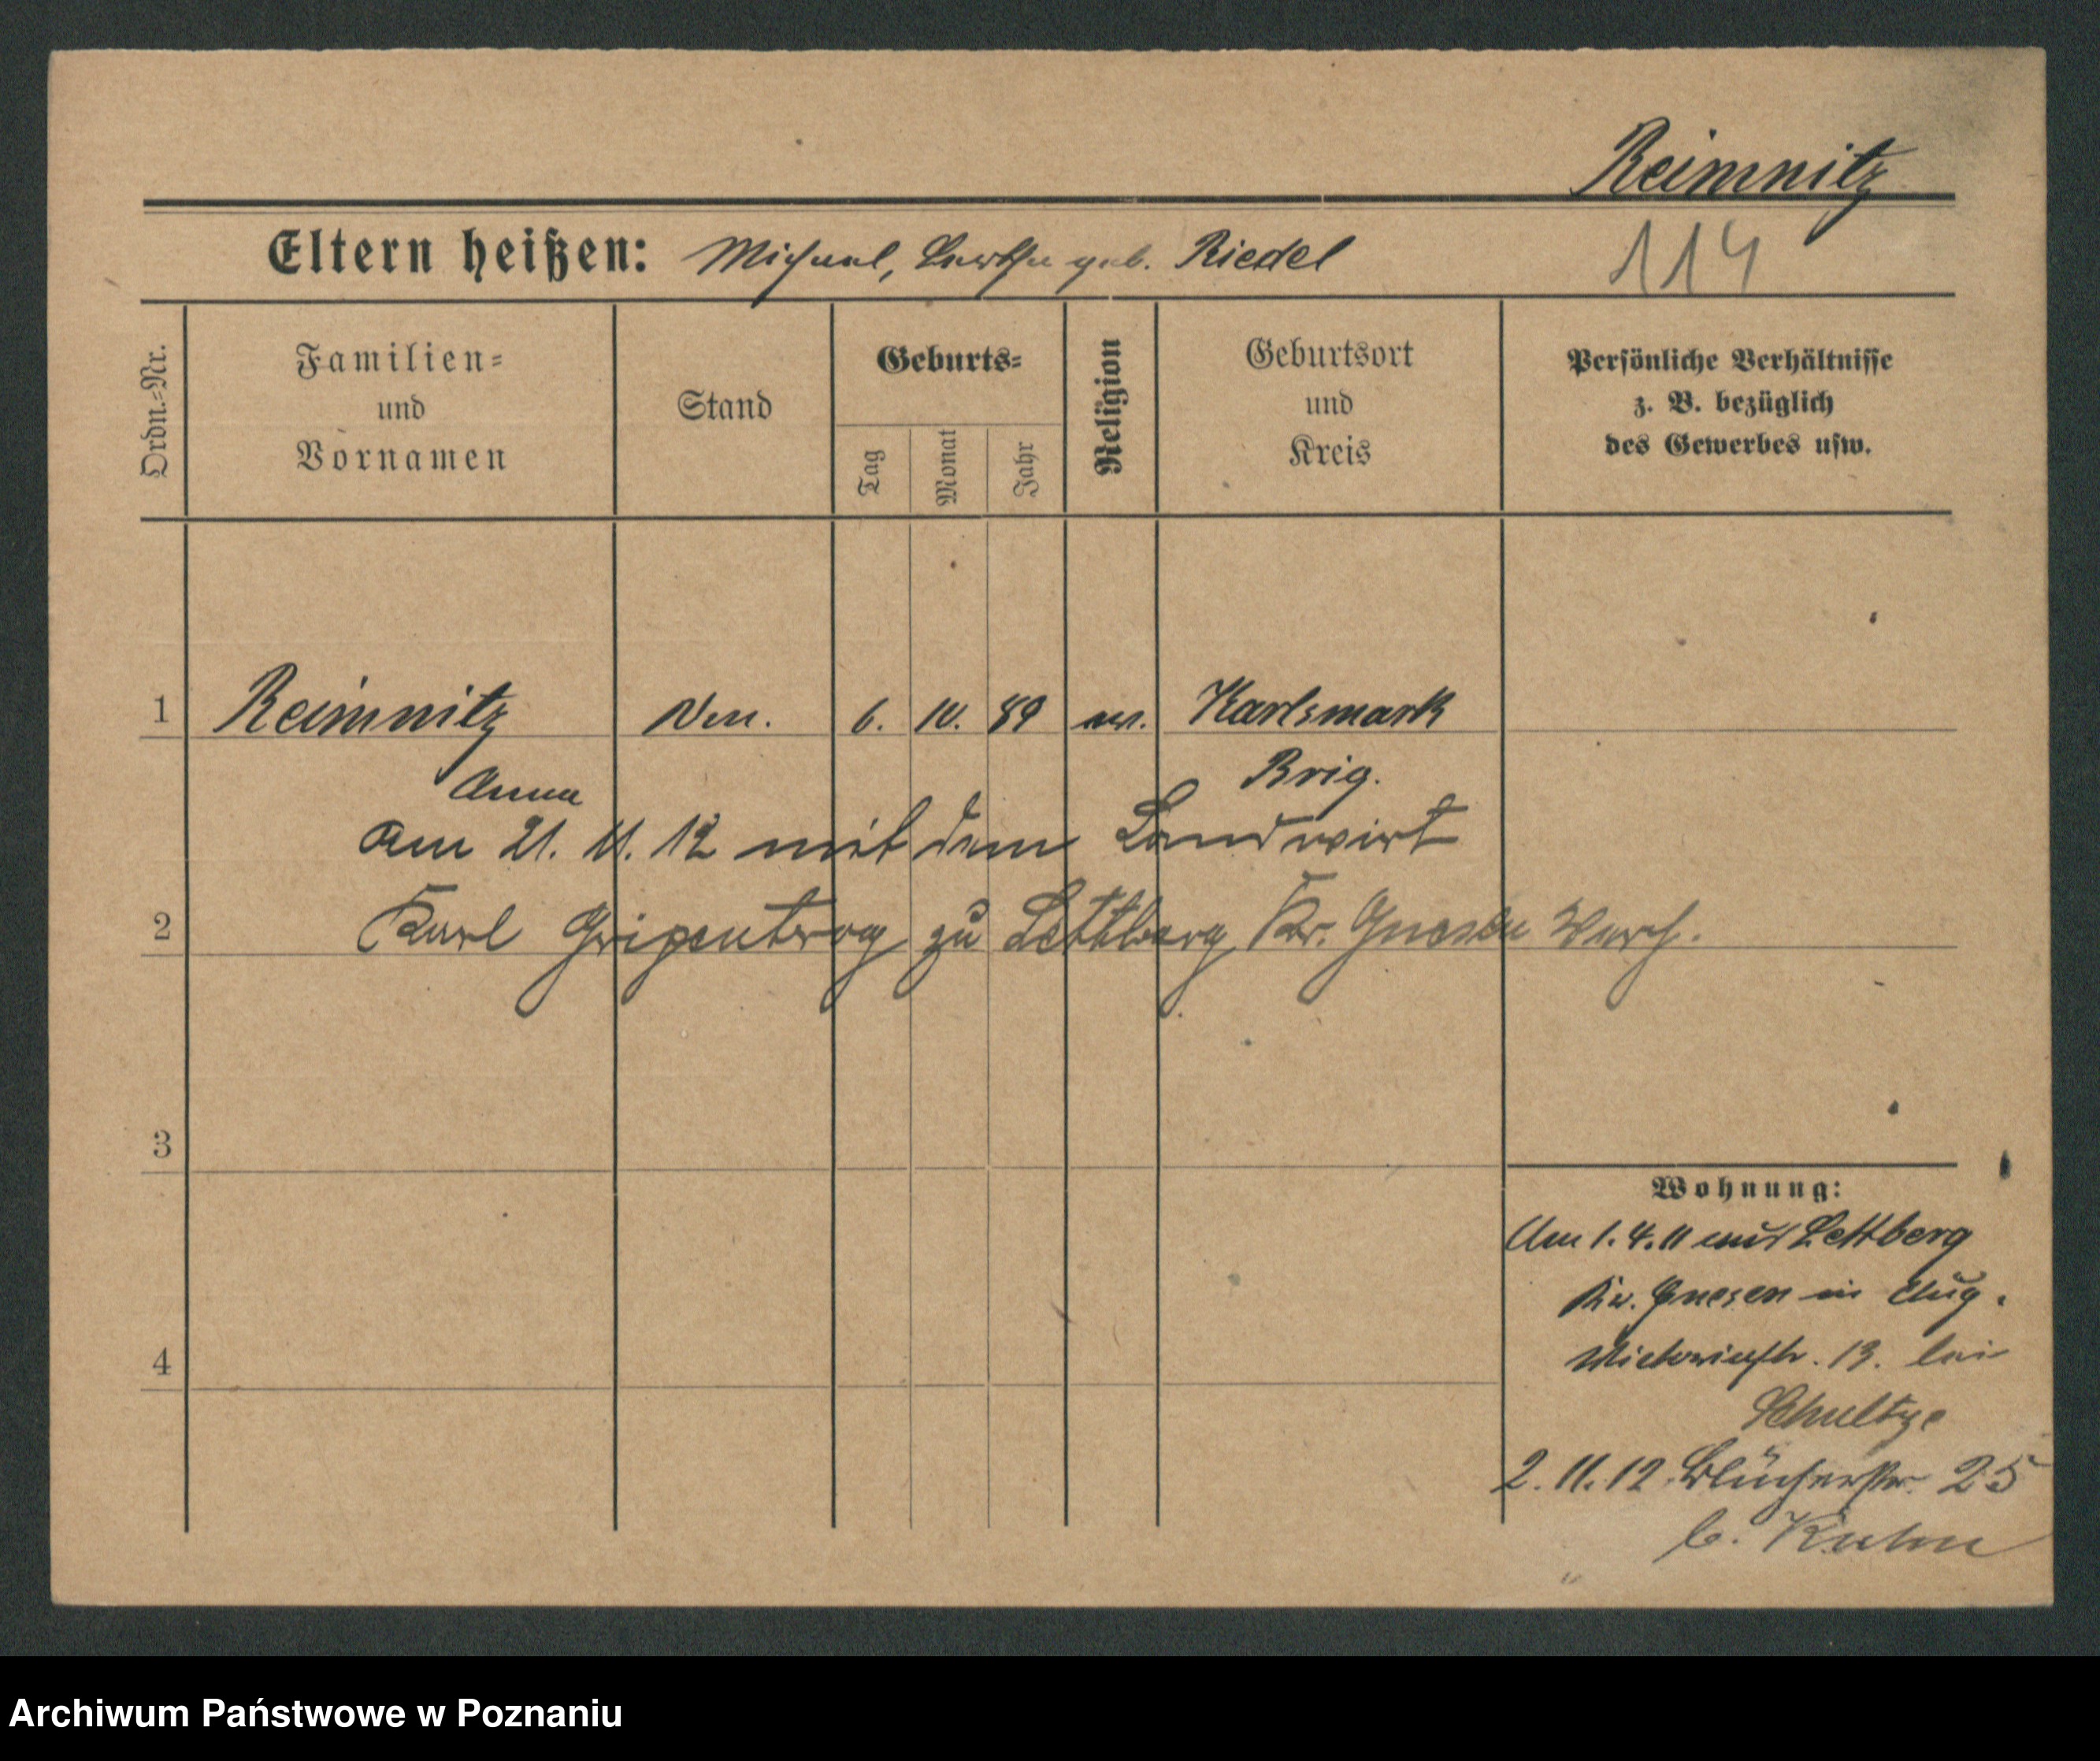 Reimnitz
Eltern heißen: Michael, Bertha geb. Riedel
114
Ordn.-Nr.
Familien-
und
Vornamen
Stand
Geburts-
Tag
Monat
Jahr
Religion
Geburtsort
und
Kreis
Persönliche Verhältnisse
z. B. bezüglich
des Gewerbes usw.
1 Reimnitz 6. 10. 89 ev. Karlsmark
Anna Brig.
am 21. 11. 12 mit dem Landwirt
2 Karl zu Lettberg Kr. Gnesen
3
4
Wohnung:
Am 1.4.11 aus Lettberg
Kr. Gnesen in Aug.
13. bei
Schultze
2.11.12 Blücherstr. 25
b. Kuhn
Archiwum Państwowe w Poznaniu